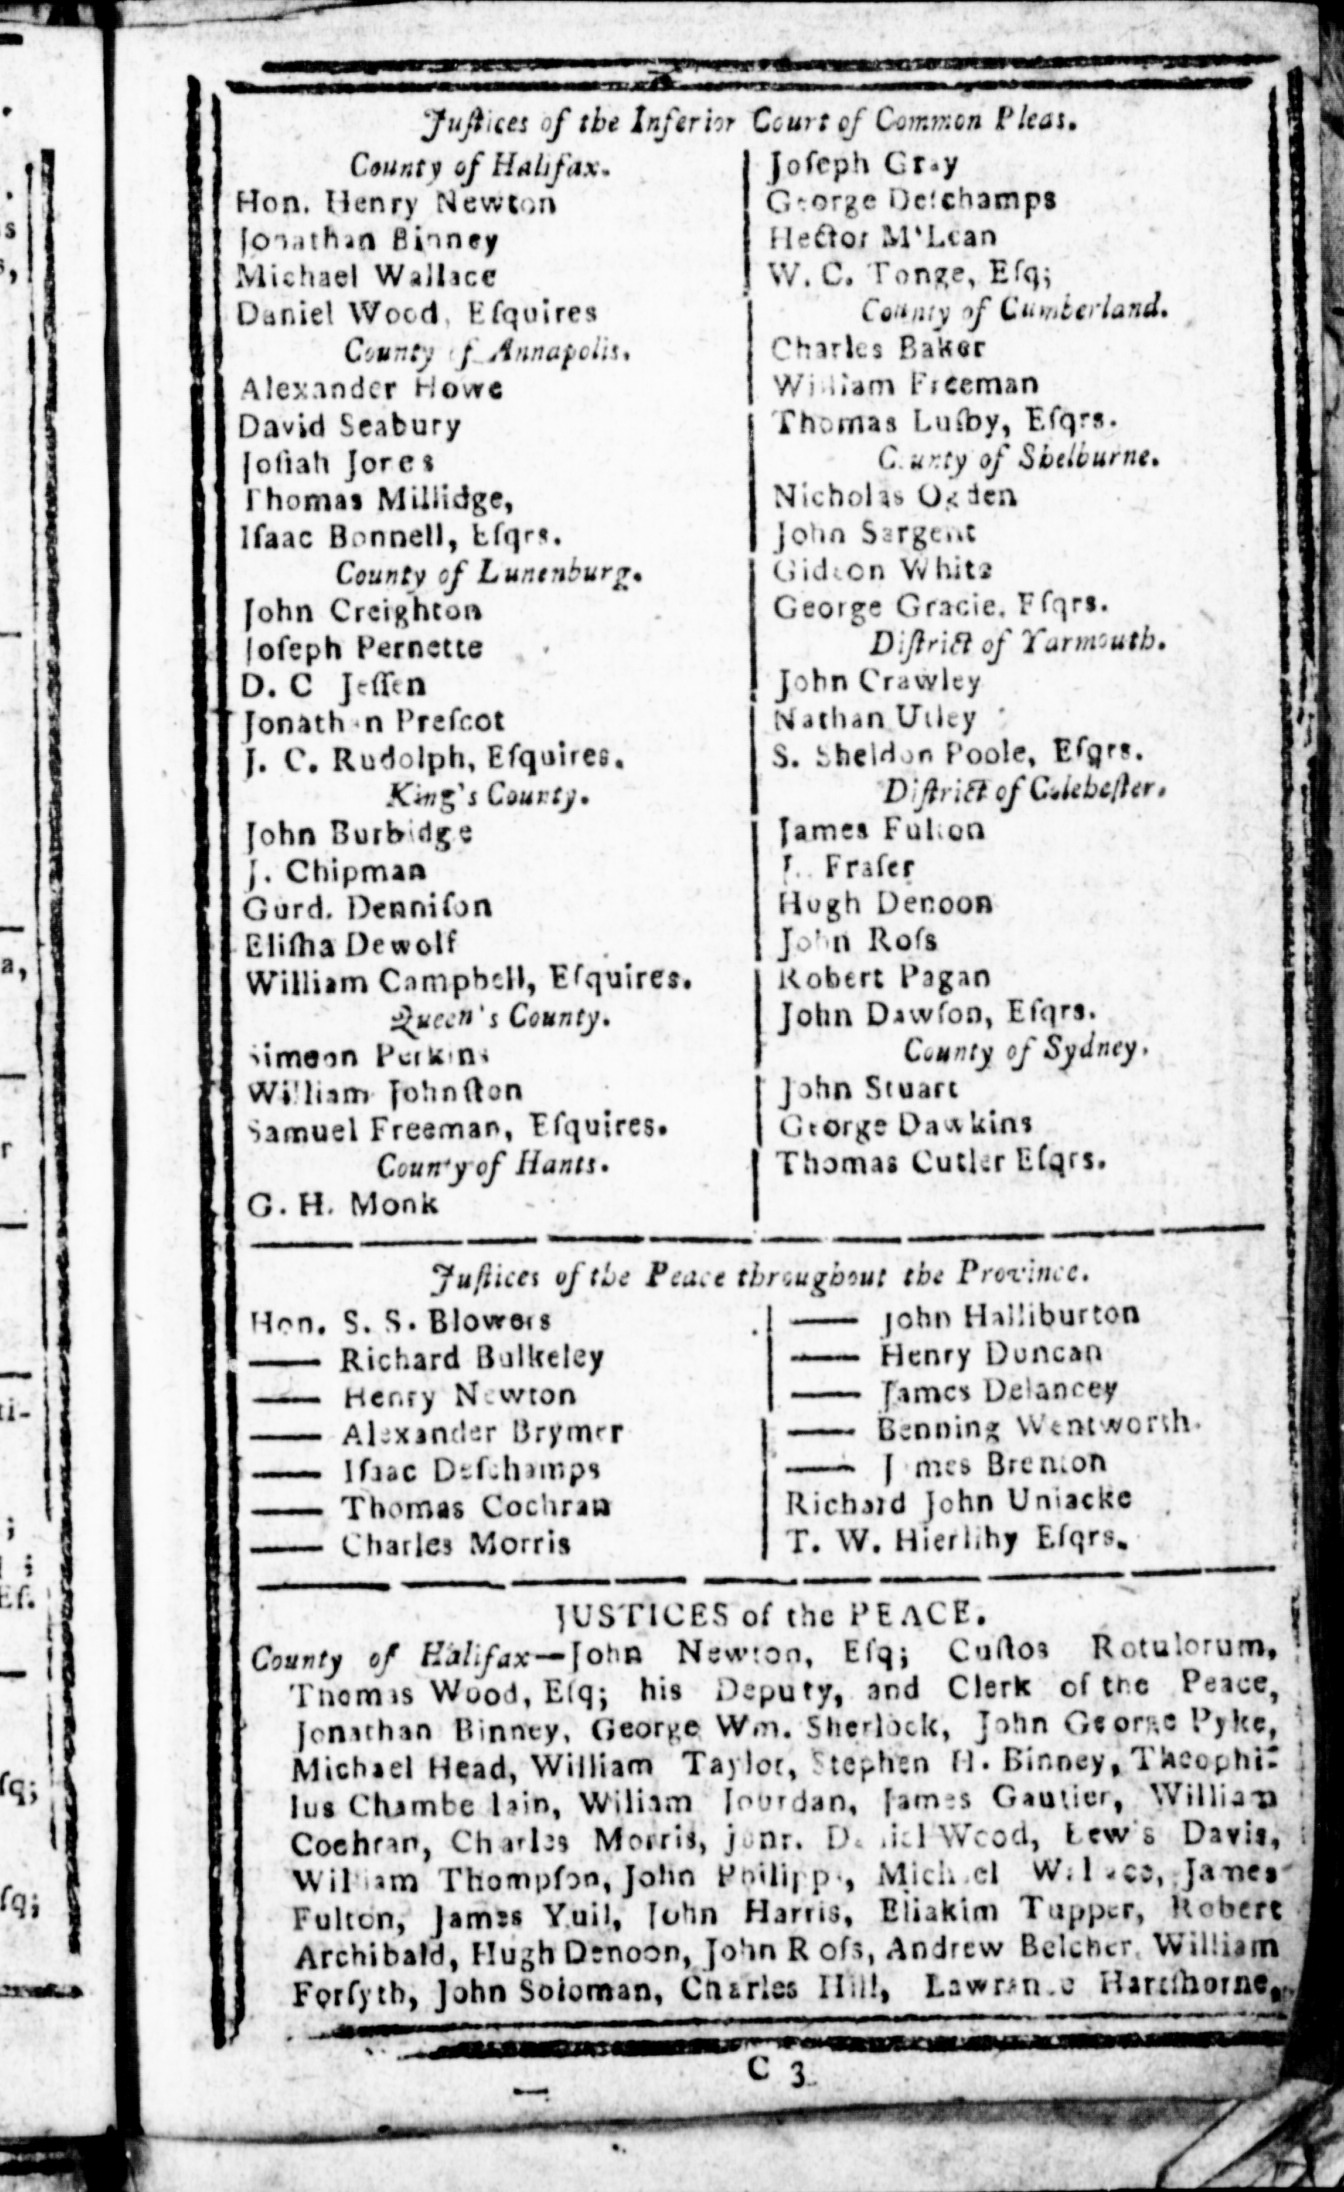 Juſtices of the Inferior Court of Common Pleas.
County of Halifax.
Hon. Henry Newton
Jonathan Binney
Michael Wallace
Daniel Wood, Eſquires
County of Annapolis.
Alexander Howe
David Seabury
Joſiah Jones
Thomas Millidge,
Iſaac Bonnell, Eſqrs.
County of Lunenburg.
John Creighton
Joſeph Pernette
D. C Jeſſen
Jonathan Preſcot
J. C. Rudolph, Eſquires.
King's County.
John Burbidge
J. Chipman
Gurd. Denniſon
Eliſha Dewolf
William Campbell, Eſquires.
Queen's County.
Simeon Perkins
William Johnſton
Samuel Freeman, Eſquires.
County of Hants.
G. H. Monk
Joſeph Gray
George Deſchamps
Hector M'Lean
W. C. Tonge, Eſq;
County of Cumberland.
Charles Baker
William Freeman
Thomas Luſby, Eſqrs.
County of Shelburne.
Nicholas Ogden
John Sargent
Gideon White
George Gracie, Eſqrs.
Diſtrict of Yarmouth.
John Crawley
Nathan Utley
S. Sheldon Poole, Eſqrs.
Diſtrict of Colcheſter.
James Fulton
Fraſer
Hugh Denoon
John Roſs
Robert Pagan
John Dawſon, Eſqrs.
County of Sydney.
John Stuart
George Dawkins
Thomas Cutler Eſqrs.
Juſtices of the Peace throughout the Province.
Hon. S. S. Blowers
—— Richard Bulkeley
—— Henry Newton
—— Alexander Brymer
—— Iſaac Deſchamps
—— Thomas Cochran
—— Charles Morris
—— John Halliburton
—— Henry Duncan
—— James Delancey
—— Benning Wentworth.
—— James Brenton
Richard John Uniacke
T. W. Hierlihy Eſqrs.
JUSTICES of the PEACE.
County of Halifax—John Newton, Eſq; Cuſtos Rotulorum,
Thomas Wood, Eſq; his Deputy, and Clerk of the Peace,
Jonathan Binney, George Wm. Sherlock, John George Pyke,
Michael Head, William Taylor, Stephen H. Binney, Theophi-
lus Chamberlain, Wiliam Jourdan, James Gautier, William
Cochran, Charles Morris, junr. Daniel Wood, Lewis Davis,
William Thompſon, John Philipps, Michael Wallace, James
Fulton, James Yuil, John Harris, Eliakim Tupper, Robert
Archibald, Hugh Denoon, John Roſs, Andrew Belcher, William
Forſyth, John Soloman, Charles Hill, Lawrance Hartſhorne,
C 3